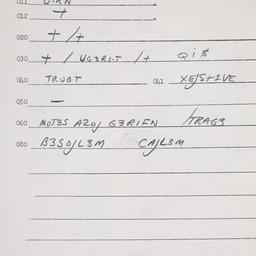 011
012 +
020 + / +
030 + / UG3RIT / + Q i $
040 TRUGT 041 XE/S+1VE
050 —
060 MOT3S A20/ G3RIFN /TRAG3
080 B3SO/L3M CA/L3M